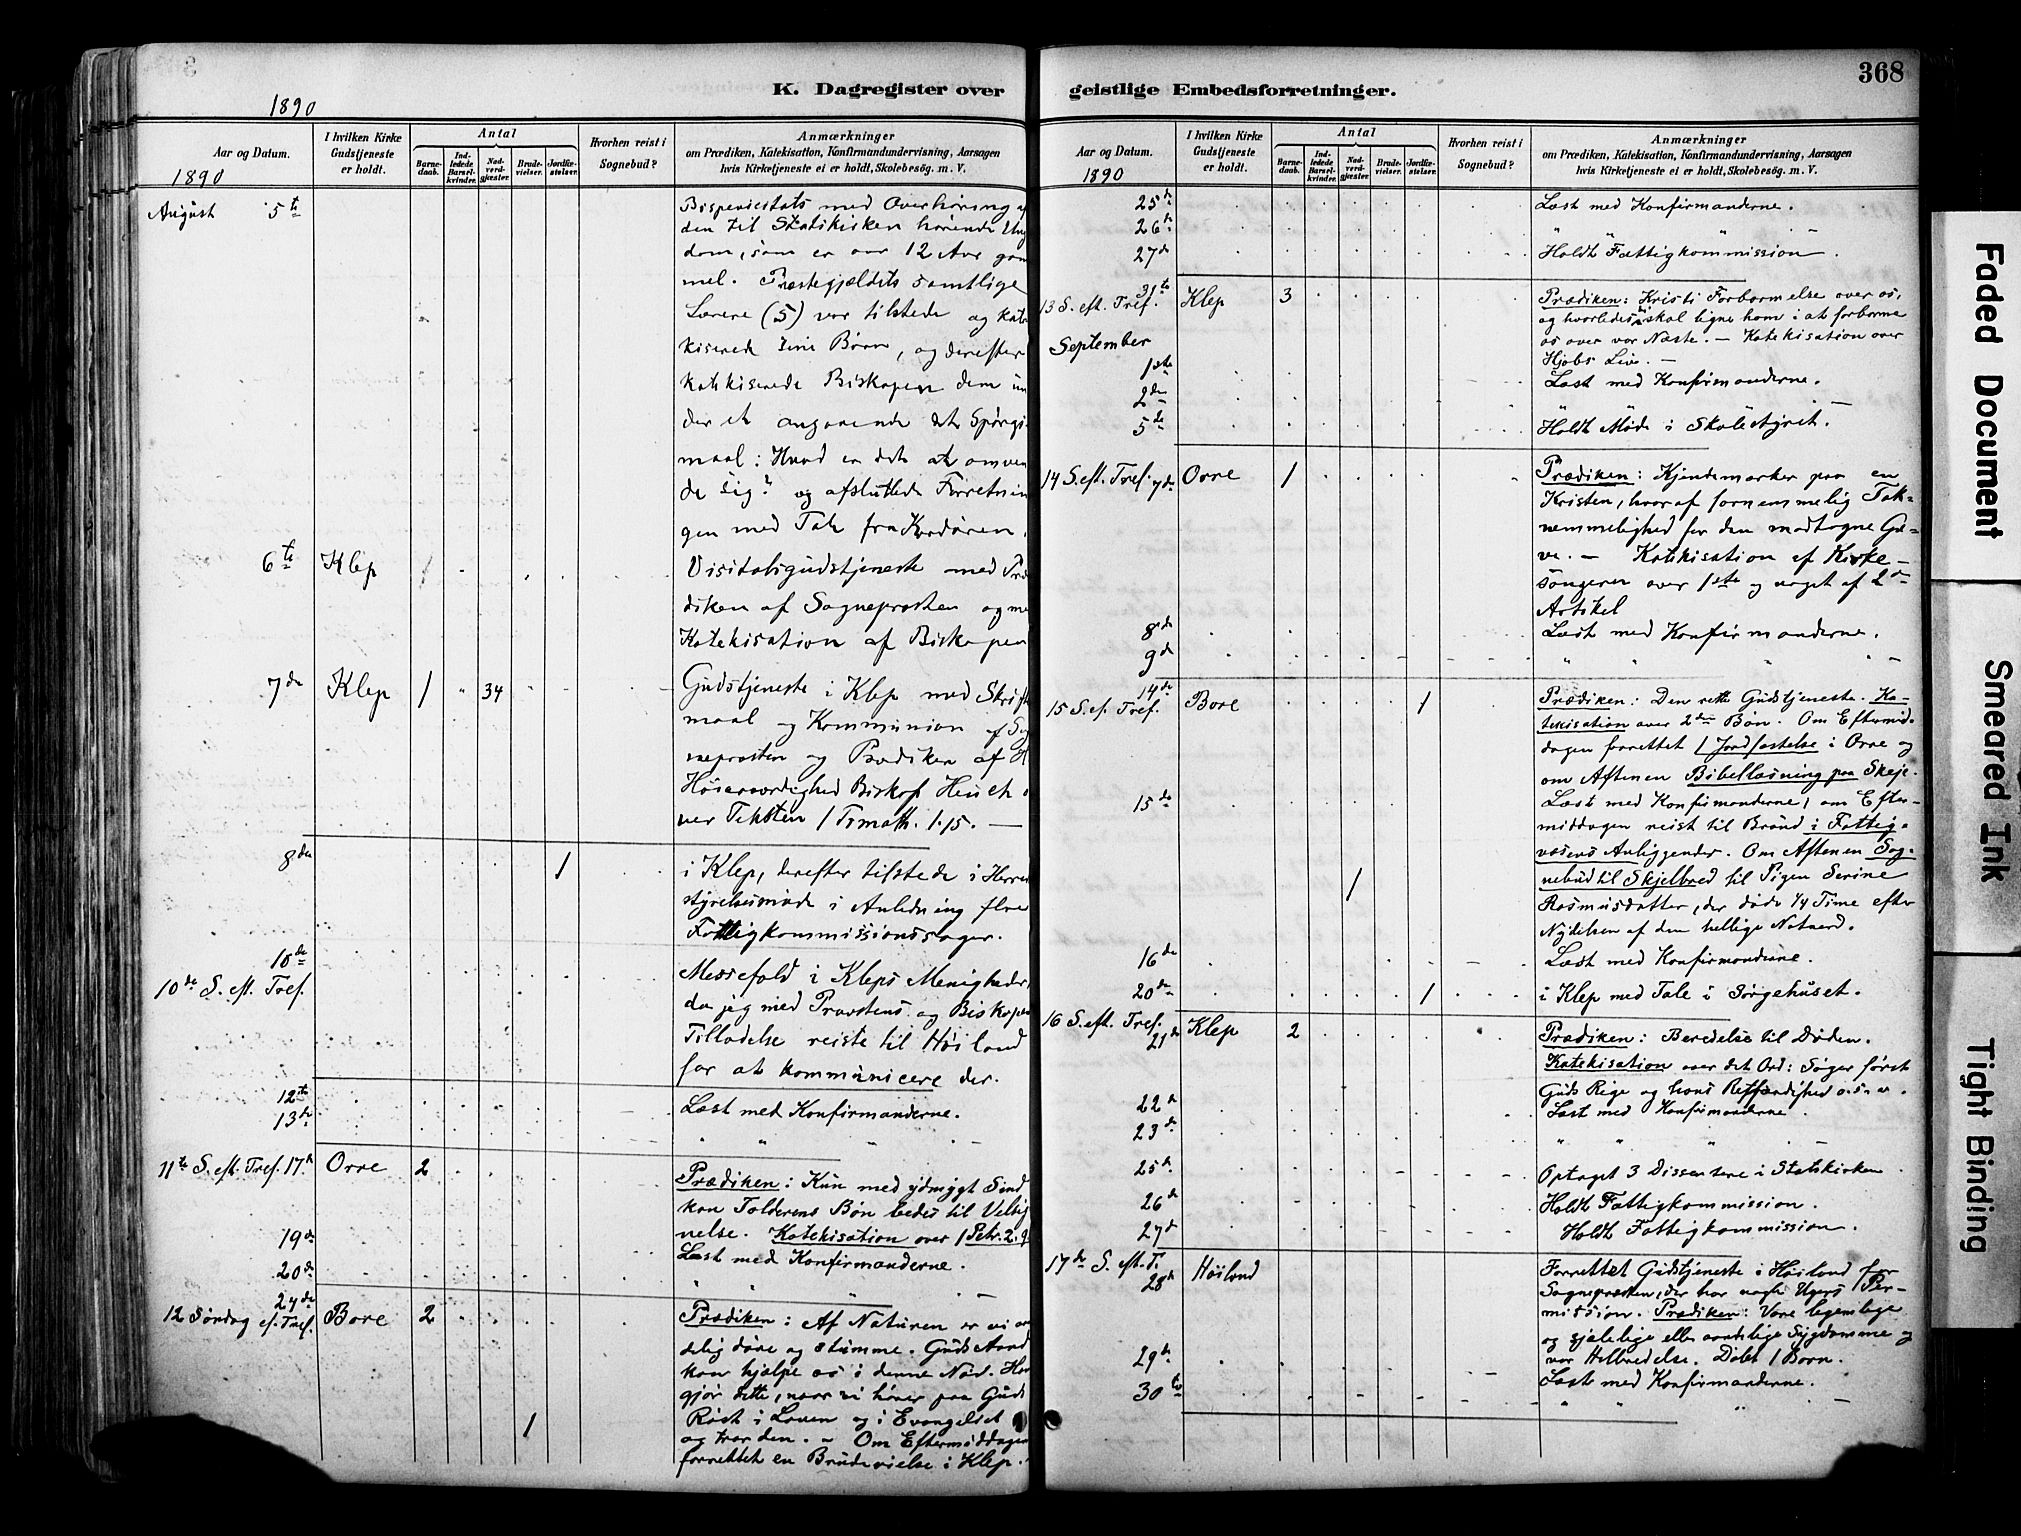 368
K. Dagregister over
geistlige Embedsforretninger.
1890
Aar og Datum.
I hvilken Kirke Gudstjeneste er holdt.
Antal
Barnedaab.
Indledede Barselkvinder.
Nadverdgjester.
Brudevielser.
Jordfæstelser.
Hvorhen reist i Sognebud?
Anmærkninger
om Prædiken, Katekisation, Konfirmandundervisning, Aarsagen
hvis Kirketjeneste ei er holdt, Skolebesøg. m. V.
1890
August 5te
Bispevisitats med Overhøring af
den til Statskirken hørende Ung
dom, som er over 12 Aar gam
mel. Præstegjældets samtlige
Lærere (5) var tilstede og kate
kiserede sine Børn, og derefter
katekiserede Biskopen dem un
der et angaaende det Spørgs
maal: Hvad er det at omven
de sig? og afsluttede Forretnin
gen med Tale fra Kordøren.
6te Klep 1
Visitatsgudstjeneste med Præ
diken af Sognepresten og me
Katekisation af Biskopen
7de Klep 1 " 34
Gudstjeneste i Klep med Skrifte
maal og Kommunion af Sog
nepresten og Prædiken af H
Høiærværdighed Biskop Heuch o
ver Teksten 1 Timoth. 1.15. —
8de 1
i Klep, derefter tilstede i Herreds
styrelsesmøde i Anledning flere
Fattigkommissionssager.
10de
10de S. eft. Tref.
Messefald i Kleps Menigheder,
da jeg med Provstens og Biskopens
Tilladelse reiste til Høiland
for at kommunicere der.
12te
13de
Læst med Konfirmanderne.
" " " —
11te S. eft. Tref. 17de Orre 2
Prædiken: Kun med ydmygt Sind
kan Tolderens Bøn bedes til Velsig
nelse. Katekisation over 1 Petr. 2.9.
19de
Læst med Konfirmanderne.
20de
" " —
24de
12 Søndag ef. Tref. Bore 2
Prædiken: Af Naturen er vi aan
delig døve og stumme. Guds Aand
kan hjælpe os i denne Nød. Han
gjør dette, naar vi hører paa Guds
Røst i Loven og i Evangeliet
1
og tror den. — Om Eftermiddagen
forrettet en Brudevielse i Klep.
Aar og Datum.
I hvilken Kirke Gudstjeneste er holdt.
Antal
Barnedaab.
Indledede Barselkvinder.
Nadverdgjester.
Brudevielser.
Jordfæstelser.
Hvorhen reist i Sognebud?
Anmærkninger
om Prædiken, Katekisation, Konfirmandundervisning, Aarsagen
hvis Kirketjeneste ei er holdt, Skolebesøg. m. V.
1890
25de Læst med Konfirmanderne.
26de " " " —
27de Holdt Fattigkommission.
31te
13 S. eft. Tref. Klep 3
Prædiken: Kristi Forbarmelse over os,
og hvorledes vi skal ligne ham i at forbarme
os over vor Næste. — Katekisation over
Hjobs Liv. —
September
1ste Læst med Konfirmanderne.
2den " " —
5te Holdt Møde i Skolestyret.
14 S. eft. Tref. 7de Orre 1
Prædiken: Kjendemærker paa en
Kristen, hvoraf fornemmelig Tak-
nemmelighed for den modtagne Ga-
ve. — Katekisation af Kirke-
sangeren over 1ste og noget af 2den
Artikel
8de Læst med Konfirmanderne.
9de " " " " —
14de
15 S. ef. Tref. Bore 1
Prædiken: Den rette Gudstjeneste. Ka-
tekisation over 2den Bøn. Om Eftermid-
dagen forrettet 1 Jordfæstelse i Orre og
om Aftenen Bibellæsning paa Skeje.
15de
Læst med Konfirmanderne, om Efter-
middagen reist til Brønd i Fattig-
væsens Anliggender. Om Aftenen Sog-
1
nebud til Skjelbred til Pigen Serine
Rasmusdatter, der døde 1/4 Time efter
Nydelsen af den hellige Nadverd.
16de Læst med Konfirmanderne.
20de 1 i Klep med Tale i Sørgehuset.
16 S. eft. Tref.
21de Klep 2
Prædiken: Beredelse til Døden.
Katekisation over det Ord: Søger først
Guds Rige og hans Retfærdighed o.s.v.
22de Læst med Konfirmanderne.
23de " " " —
25de Optaget 3 Dissentere i Statskirken
26de Holdt Fattigkommission.
27de Holdt Fattigkommission.
17de S. eft. T.
28de Høiland
Forrettet Gudstjeneste i Høiland for
Sognepresten, der har nogle Ugers Per-
mission. Prædiken: Vore legemlige
og sjælelige eller aandelige Sygdomme og
vor Helbredelse. Døbt 1 Barn.
29de
Læst med Konfirmanderne.
30te " " " —
Faded Document
Smeared Ink
Tight Binding